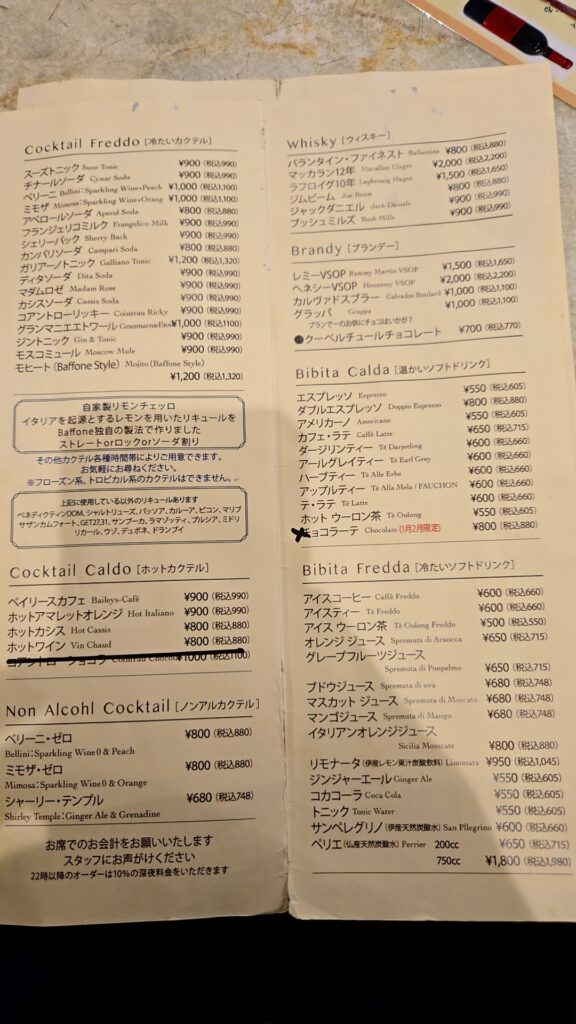 Cocktail Freddo [冷たいカクテル]
スーズトニック Suze Tonic ¥900 (税込990)
チナールソーダ Cynar Soda ¥900 (税込990)
ベリーニ Bellini:Sparkling Wine+Peach ¥1,000 (税込1,100)
ミモザ Mimosa:Sparkling Wine+Orang ¥1,000 (税込1,100)
アペロールソーダ Aperol Soda ¥800 (税込880)
フランジェリコミルク Frangelico Milk ¥900 (税込990)
シェリーバック Sherry Back ¥900 (税込990)
カンパリソーダ Campari Soda ¥800 (税込880)
ガリアーノトニック Galliano Tonic ¥1,200 (税込1,320)
ディタソーダ Dita Soda ¥900 (税込990)
マダムロゼ Madam Rose ¥900 (税込990)
カシスソーダ Cassis Soda ¥900 (税込990)
コアントローリッキー Cointrau Ricky ¥900 (税込990)
グランマニエエトワール ¥1,000 (税込1100)
ジントニック Gin & Tonic ¥900 (税込990)
モスコミュール Moscow Mule ¥900 (税込990)
モヒート (Baffone Style) Mojito (Baffone Style)
¥1,200 (税込1,320)
自家製リモンチェッロ
イタリアを起源とするレモンを用いたリキュールを
Baffone独自の製法で作りました
ストレートorロックorソーダ割り
その他カクテル各種時間帯によりご用意できます。
お気軽にお尋ねください。
※フローズン系、トロピカル系のカクテルはできません。
上記に使用している以外のリキュールあります
ベネディクティンDOM, シャルトリューズ, パッソア, カルーア, ピコン, マリブ
サザンカムフォート, GET27,31, サンブーカ, ラマゾッティ, ブルシア, ミドリ
リカール, ウゾ, デュボネ, ドランブイ
Cocktail Caldo [ホットカクテル]
ベイリースカフェ Baileys-Cafè ¥900 (税込990)
ホットアマレットオレンジ Hot Italiano ¥900 (税込990)
ホットカシス Hot Cassis ¥800 (税込880)
ホットワイン Vin Chaud ¥800 (税込880)
コアントローショコラ Cointrau Chocola ¥1000 (税込1100)
Non Alcohl Cocktail [ノンアルカクテル]
ベリーニ・ゼロ ¥800 (税込880)
Bellini:Sparkling Wine0 & Peach
ミモザ・ゼロ ¥800 (税込880)
Mimosa:Sparkling Wine0 & Orange
シャーリー・テンプル ¥680 (税込748)
Shirley Temple:Ginger Ale & Grenadine
お席でのお会計をお願いいたします
スタッフにお声がけください
22時以降のオーダーは10%の深夜料金をいただきます
Whisky [ウィスキー]
バランタイン・ファイネスト Ballantine ¥800 (税込880)
マッカラン12年 Macallan 12ages ¥2,000 (税込2,200)
ラフロイグ10年 Laphroaig 10ages ¥1,500 (税込1,650)
ジムビーム Jim Beam ¥800 (税込880)
ジャックダニエル Jack Daniels ¥900 (税込990)
ブッシュミルズ Bush Mills ¥900 (税込990)
Brandy [ブランデー]
レミーVSOP Remmy Martin VSOP ¥1,500 (税込1,650)
ヘネシーVSOP Hennessy VSOP ¥2,000 (税込2,200)
カルヴァドスブラー Calvados Boulard ¥1,000 (税込1,100)
グラッパ Grappa ¥1,000 (税込1,100)
ブランデーのお供にチョコはいかが?
●クーベルチュールチョコレート ¥700 (税込770)
Bibita Calda [温かいソフトドリンク]
エスプレッソ Espresso ¥550 (税込605)
ダブルエスプレッソ Doppio Espresso ¥800 (税込880)
アメリカーノ Americano ¥550 (税込605)
カフェ・ラテ Caffè Latte ¥650 (税込715)
ダージリンティー Tè Darjeeling ¥600 (税込660)
アールグレイティー Tè Earl Grey ¥600 (税込660)
ハーブティー Tè Alle Erbe ¥600 (税込660)
アップルティー Tè Alla Mela / FAUCHON ¥600 (税込660)
テ・ラテ Tè Latte ¥600 (税込660)
ホット ウーロン茶 Tè Oolong ¥550 (税込605)
チョコラーテ Chocolate (1月2月限定) ¥800 (税込880)
Bibita Fredda [冷たいソフトドリンク]
アイスコーヒー Caffè Freddo ¥600 (税込660)
アイスティー Tè Freddo ¥600 (税込660)
アイス ウーロン茶 Tè Oolong Freddo ¥500 (税込550)
オレンジ ジュース Spremuta di Arancca ¥650 (税込715)
グレープフルーツジュース
Spremuta di Ponpelmo ¥650 (税込715)
ブドウジュース Spremuta di uva ¥680 (税込748)
マスカット ジュース Spremuta di Moscato ¥680 (税込748)
マンゴジュース Spremuta di Mango ¥680 (税込748)
イタリアンオレンジジュース
Sicilia Mosscato ¥800 (税込880)
リモナータ (伊産レモン果汁炭酸飲料) Limonata ¥950 (税込1,045)
ジンジャーエール Ginger Ale ¥550 (税込605)
コカコーラ Coca Cola ¥550 (税込605)
トニック Tonic Water ¥550 (税込605)
サンペレグリノ (伊産天然炭酸水) San Pllegrino ¥600 (税込660)
ペリエ (仏産天然炭酸水) Perrier 200cc ¥650 (税込715)
750cc ¥1,800 (税込1,980)